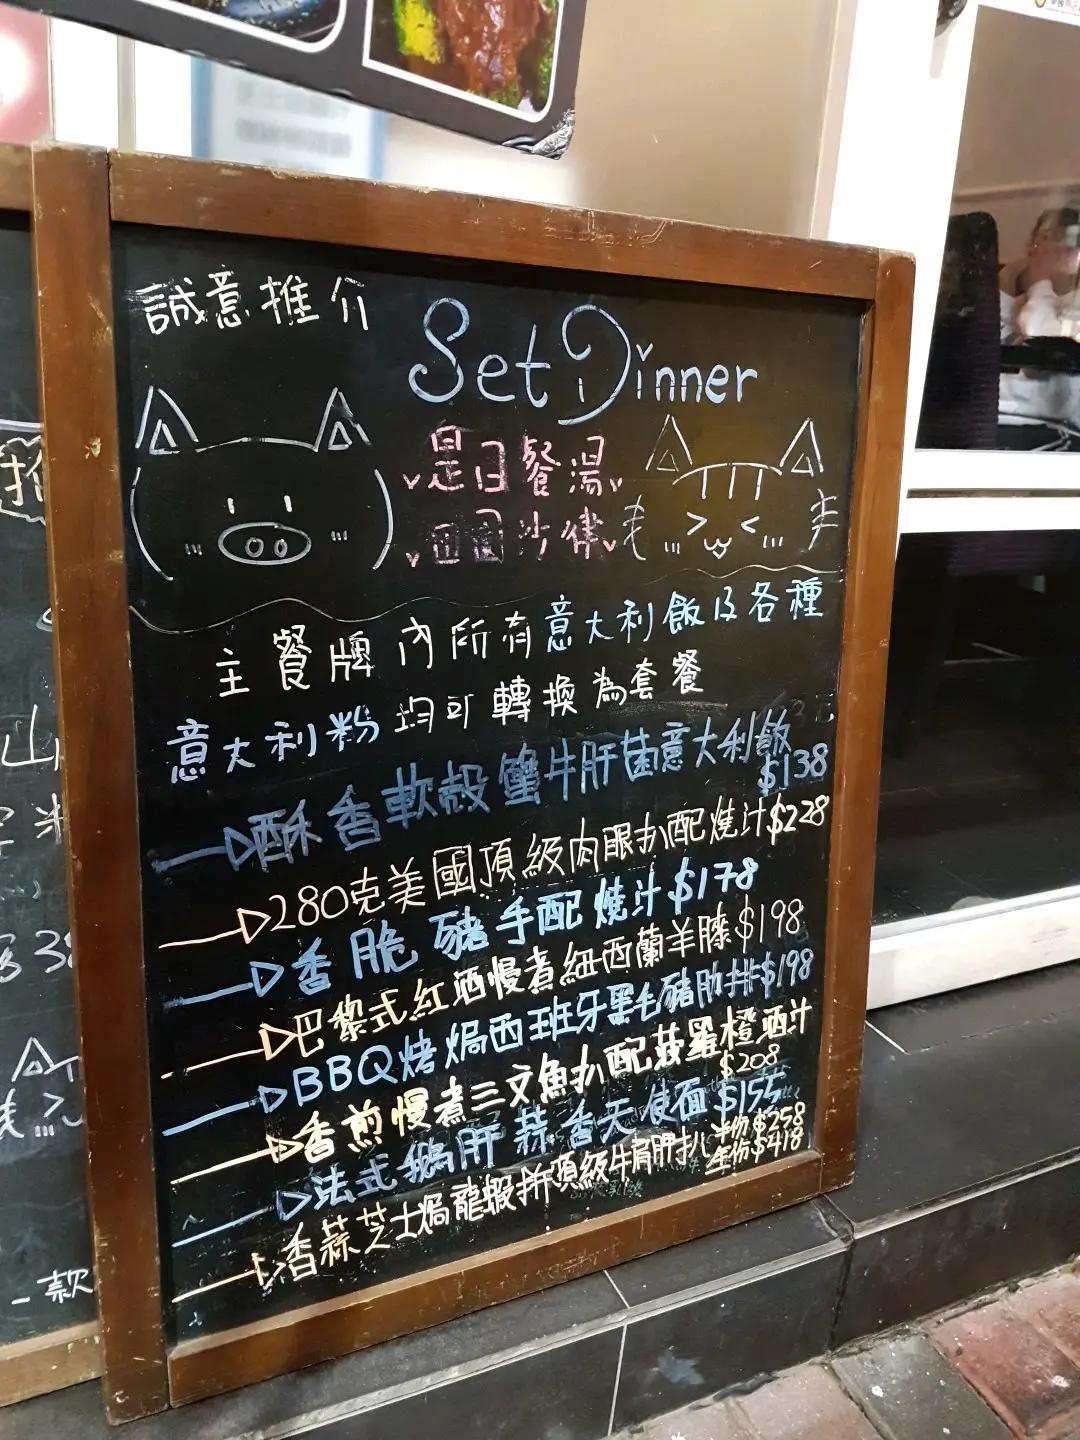 誠意推介
Set Dinner
是日餐湯
田園沙律
主餐牌內所有意大利飯及各種
意大利粉均可轉換為套餐
酥香軟殼蟹牛肝菌意大利飯
$138
280克美國頂級肉眼扒配燒汁$228
香脆豬手配燒汁$178
巴黎式紅酒慢煮紐西蘭羊膝$198
BBQ烤焗西班牙黑毛豬肋排$198
香煎慢煮三文魚扒配菠蘿橙酒汁
$208
法式鵝肝蒜香天使面$155
香蒜芝士焗龍蝦拼頂級牛肩胛扒 半份$258
全份$418
款